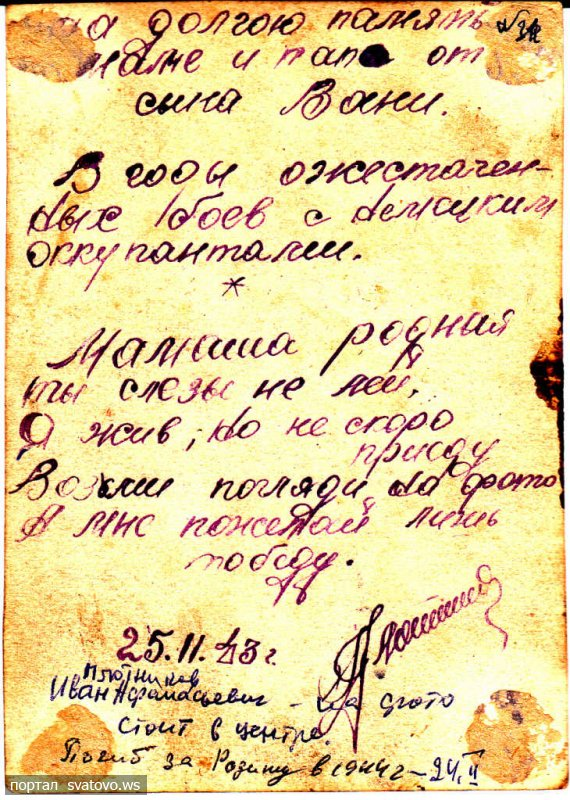 На долгою память
маме и папе от
сына Вани.
В годы ожестачен-
ных боев с немицким
оккупантами.
*
Мамаша родная
ты слезы не лей,
Я жив, но не скоро
приеду
Возми погляди на фото
И мне пожелай лишь
победу.
25.11.43 г.
Плотников
Иван Афанасьевич - на фото
стоит в центре.
Погиб за Родину в 1944 г - 24.II
портал svatovo.ws